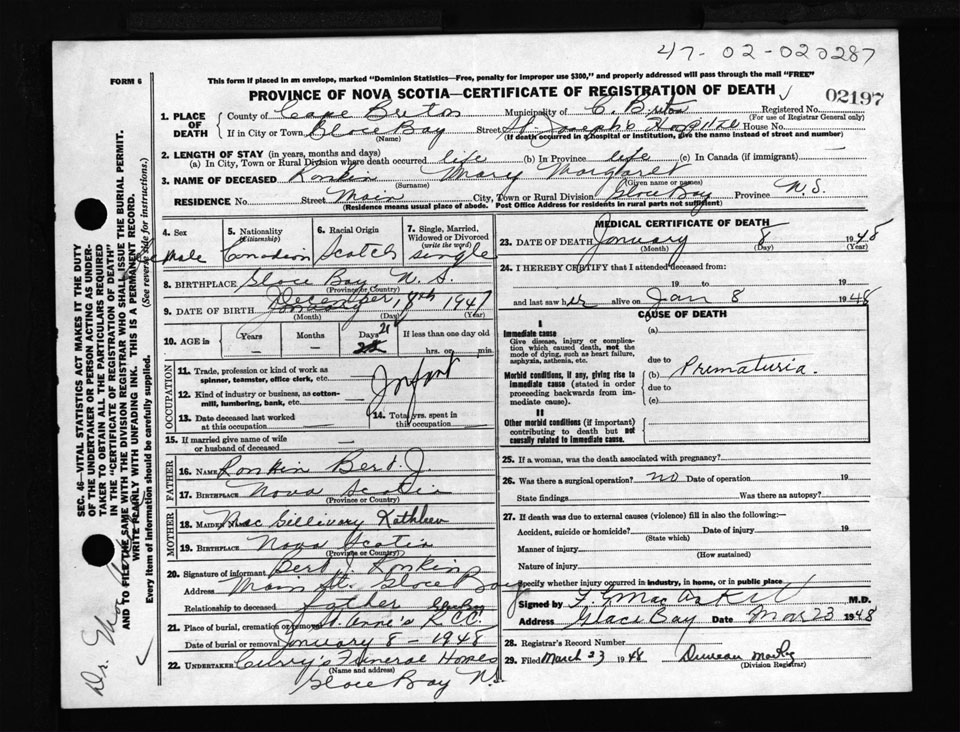 47-02-020287
FORM 6
This form if placed in an envelope, marked "Dominion Statistics—Free, penalty for improper use $300," and properly addressed will pass through the mail "FREE"
PROVINCE OF NOVA SCOTIA—CERTIFICATE OF REGISTRATION OF DEATH
02197
1. PLACE OF DEATH
County of Cape Breton Municipality of C. Breton Registered No.
(For use of Registrar General only)
If in City or Town Glace Bay Street St. Joseph's Hospital House No.
(Name) (If death occurred in a hospital or institution, give the name instead of street and number)
2. LENGTH OF STAY (in years, months and days)
(a) In City, Town or Rural Division where death occurred life (b) In Province life (c) In Canada (if immigrant)
3. NAME OF DECEASED Rankin Mary Margaret
(Surname) (Given name or names)
RESIDENCE No. Street Main City, Town or Rural Division Glace Bay Province N.S.
(Residence means usual place of abode. Post Office Address for residents in rural parts not sufficient)
4. Sex
5. Nationality (Citizenship)
6. Racial Origin
7. Single, Married, Widowed or Divorced (write the word)
Canadian Scotch single
8. BIRTHPLACE Glace Bay N.S.
(Province or Country)
9. DATE OF BIRTH December 19th 1947
(Month) (Day) (Year)
10. AGE is
Years Months Days 21 If less than one day old
hrs. or min.
OCCUPATION
11. Trade, profession or kind of work as spinner, teamster, office clerk, etc.
Infant
12. Kind of industry or business, as cotton-mill, lumbering, bank, etc.
13. Date deceased last worked at this occupation
14. Total yrs. spent in this occupation
15. If married give name of wife or husband of deceased
FATHER
16. NAME Rankin Bert J.
17. BIRTHPLACE Nova Scotia
(Province or Country)
MOTHER
18. MAIDEN NAME MacGillivary Kathleen
19. BIRTHPLACE Nova Scotia
(Province or Country)
20. Signature of informant Bert J. Rankin
Address Main St. Glace Bay
Relationship to deceased father
Glace Bay
21. Place of burial, cremation or removal St. Anne's R.C.C.
Date of burial or removal January 8 - 1948
22. UNDERTAKER Curry's Funeral Homes
(Name and address)
Glace Bay N.S.
MEDICAL CERTIFICATE OF DEATH
23. DATE OF DEATH January 8 1948
(Month) (Day) (Year)
24. I HEREBY CERTIFY that I attended deceased from:
19 to 19
and last saw her alive on Jan 8 1948
CAUSE OF DEATH
I
Immediate cause
Give disease, injury or complication which caused death, not the mode of dying, such as heart failure, asphyxia, asthenia, etc.
(a)
due to
Morbid conditions, if any, giving rise to immediate cause (stated in order proceeding backwards from immediate cause).
(b) Prematuria.
due to
(c)
II
Other morbid conditions (if important) contributing to death but not causally related to immediate cause.
25. If a woman, was the death associated with pregnancy?
26. Was there a surgical operation? no Date of operation 19
State findings Was there autopsy?
27. If death was due to external causes (violence) fill in also the following:—
Accident, suicide or homicide? Date of injury 19
(State which)
Manner of injury
(How sustained)
Nature of injury
Specify whether injury occurred in industry, in home, or in public place
Signed by M.D.
Address Glace Bay Date Mar 23 1948
28. Registrar's Record Number
29. Filed March 23 1948 Duncan
(Division Registrar)
SEC. 46—VITAL STATISTICS ACT MAKES IT THE DUTY
OF THE UNDERTAKER OR PERSON ACTING AS UNDERTAKER TO OBTAIN ALL THE PARTICULARS REQUIRED
IN THE "CERTIFICATE OF REGISTRATION OF DEATH"
AND TO FILE THE SAME WITH THE DIVISION REGISTRAR WHO SHALL ISSUE THE BURIAL PERMIT.
WRITE PLAINLY WITH UNFADING INK. THIS IS A PERMANENT RECORD.
Every item of information should be carefully supplied. (See reverse side for instructions.)
Dr.